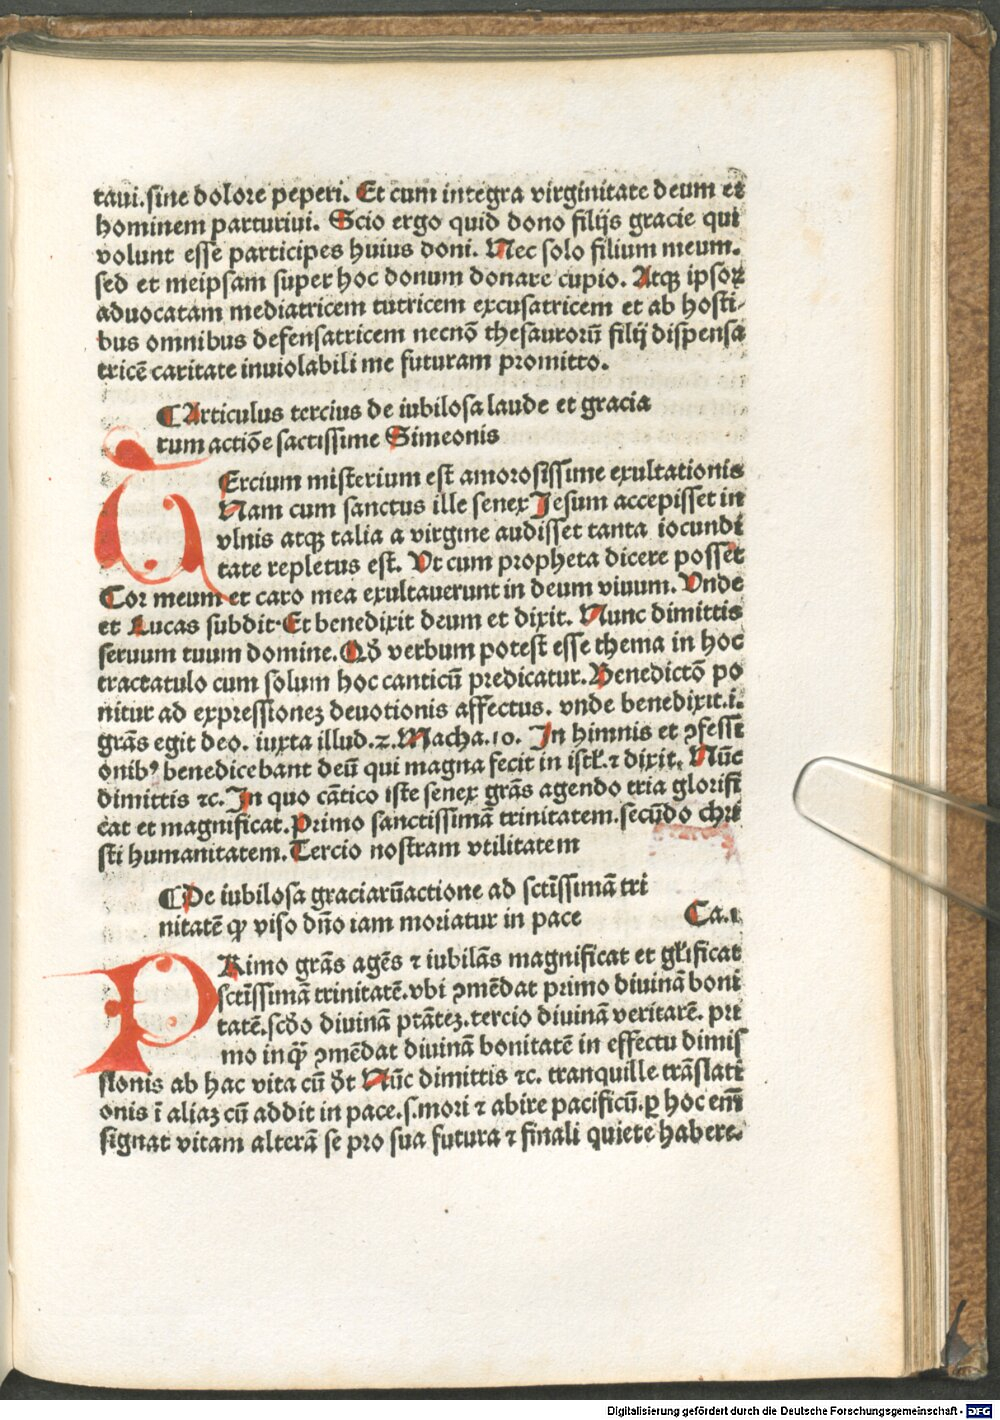 taui.sine dolore peperi. Et cum integra virginitate deum et
hominem parturiui. Scio ergo quid dono filijs gracie qui
volunt esse participes huius doni. Nec solo filium meum.
sed et meipsam super hoc donum donare cupio. Atqꝫ ipsoꝝ
aduocatam mediatricem tutricem excusatricem et ab hosti-
bus omnibus defensatricem necnō thesaurorū filij dispensa
tricē caritate inuiolabili me futuram promitto.
¶Articulus tercius de iubilosa laude et gracia
rum actiōe sactissime Simeonis
TErcium misterium est amorosissime exultationis
Nam cum sanctus ille senex Jesum accepisset in
vlnis atqꝫ talia a virgine audisset tanta iocundi
tate repletus est. Vt cum propheta dicere posset
Cor meum et caro mea exultauerunt in deum viuum. Vnde
et Lucas subdit·Et benedixit deum et dixit. Nunc dimittis
seruum tuum domine. Qđ verbum potest esse thema in hoc
tractatulo cum solum hoc canticū predicatur. Benedictō po
nitur ad expressionez deuotionis affectus. vnde benedixit.i.
grās egit deo. iuxta illud.2.Macha.10. In himnis et ꝯfessi
onibꝰ benedicebant deū qui magna fecit in isrł.⁊ dixit. Nūc
dimittis ⁊c. In quo cātico iste senex grās agendo tria glorifi
cat et magnificat. Primo sanctissimā trinitatem.secūdo chri
sti humanitatem. Tercio nostram vtilitatem
¶De iubilosa graciarūactione ad sctīssimā tri
nitatē ꝙ viso dño iam moriatur in pace Ca.1
PRimo grās agēs ⁊ iubilās magnificat et głificat
sctīssimā trinitatē.vbi ꝯmēdat primo diuinā boni
tatē.scđo diuinā ptātez.tercio diuinā veritatē. pri
mo inqꝫ̄ ꝯmēdat diuinā bonitatē in effectu dimis
sionis ab hac vita cū đt Nūc dimittis ⁊c. tranquille trāslati
onis ī aliaz cū addit in pace.s.mori ⁊ abire pacificū.ꝑ hoc eni
signat vitam alterā se pro sua futura ⁊ finali quiete habere.
Digitalisierung gefördert durch die Deutsche Forschungsgemeinschaft - DFG